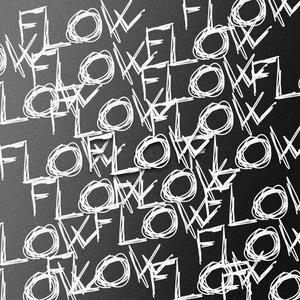 FLOW
FLOW
FLOW
FLOW
FLOW
FLOW
FLOW
FLOW
FLOW
FLOW
FLOW
FLOW
FLOW
FLOW